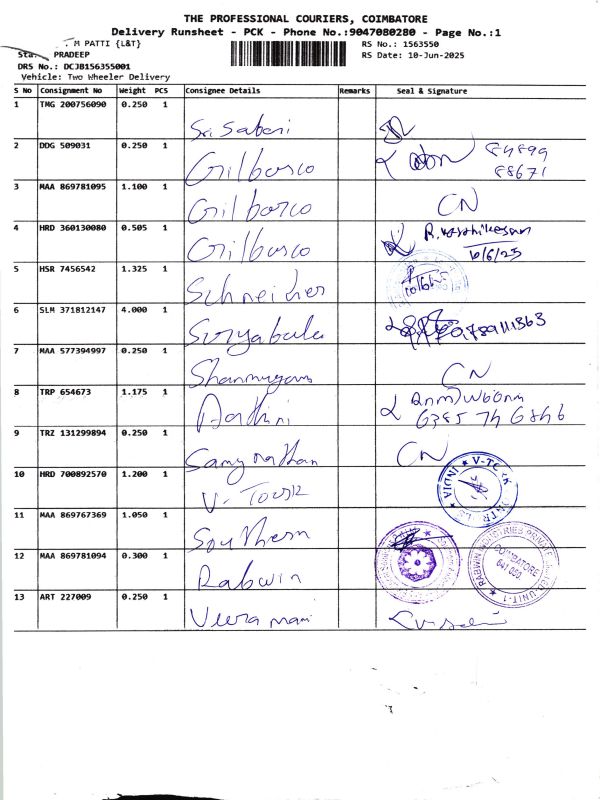 THE PROFESSIONAL COURIERS, COIMBATORE
Delivery Runsheet - PCK - Phone No.:9047080280 - Page No.:1
M PATTI {L&T}
RS No.: 1563550
PRADEEP
RS Date: 10-Jun-2025
DRS No.: DCJB156355001
Vehicle: Two Wheeler Delivery
S No Consignment No Weight PCS Consignee Details Remarks Seal & Signature
1 TMG 200756090 0.250 1
Sri Sabari
2 DDG 509031 0.250 1
Gilbarco 84899
88671
3 MAA 869781095 1.100 1
Gilbarco CN
4 HRD 360130080 0.505 1
Gilbarco R. Karthikesan
10/6/25
5 HSR 7456542 1.325 1
Schneider 10/6/25
6 SLM 371812147 4.000 1
Suryabala
7 MAA 577394997 0.250 1
Shanmugam CN
8 TRP 654673 1.175 1
6385 74 6846
9 TRZ 131299894 0.250 1
Samynathan CN
10 HRD 700892570 1.200 1
V-Tork V-TORK INDIA
11 MAA 869767369 1.050 1
Southern
12 MAA 869781094 0.300 1
Rabwin RABWIN INDUSTRIES PRIVATE UNIT-1 COIMBATORE 641 050.
13 ART 227009 0.250 1
Veeramani